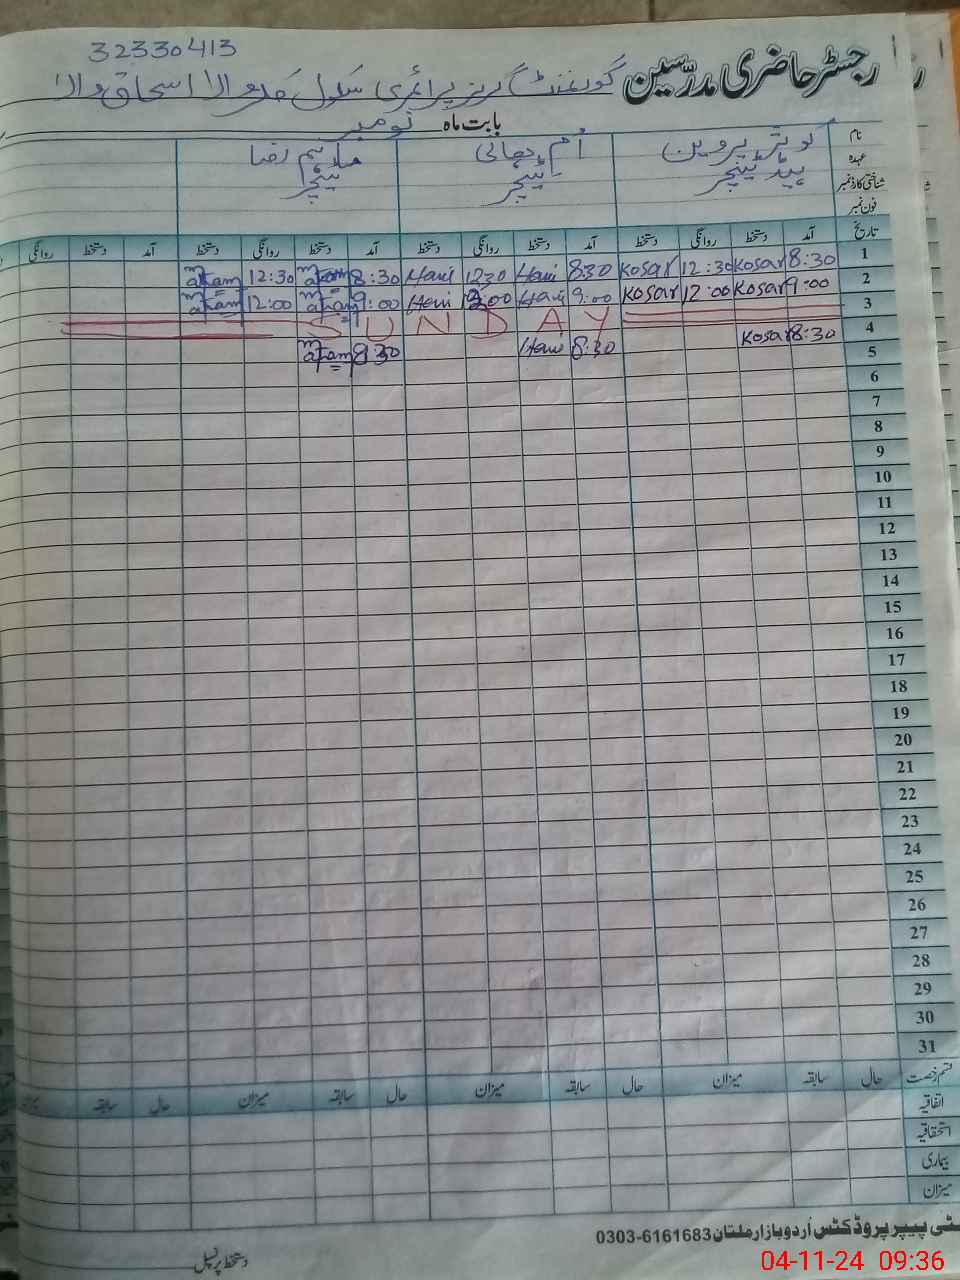 32330413
رجسٹر حاضری مدرّسین گورنمنٹ گرلز پرائمری سکول اسحاق والا
بابت ماہ نومبر
نام کوثر پروین اُم ہانی
عہدہ ہیڈ ٹیچر ٹیچر ٹیچر
شناختی کارڈ نمبر
فون نمبر
تاریخ آمد دستخط روانگی دستخط آمد دستخط روانگی دستخط آمد دستخط روانگی دستخط آمد دستخط روانگی
1 8:30 Kosar 12:30 Kosar 8:30 Hani 1230 Hani 8:30 12:30
2 9:00 Kosar 12:00 Kosar 9:00 Hani 12:00 Hani 9:00 12:00
3 SUNDAY
4 8:30 Kosar 8:30 Hani 8:30
5
6
7
8
9
10
11
12
13
14
15
16
17
18
19
20
21
22
23
24
25
26
27
28
29
30
31
قسم رخصت حال سابقہ میزان حال سابقہ میزان حال سابقہ میزان حال سابقہ
اتفاقیہ
استحقاقیہ
بیماری
میزان
سٹی پیپر پروڈکٹس اُردو بازار ملتان 0303-6161683
دستخط پرنسپل
04-11-24 09:36